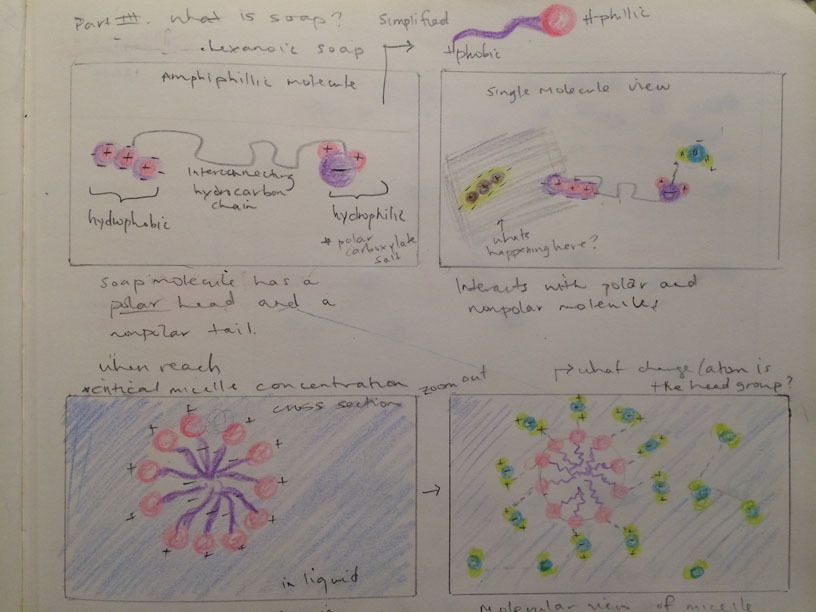 Part III. what is soap?
Simplified
Hphillic
Hphobic
. hexanoic soap
Amphiphillic molecule
Interconnecting
hydrocarbon
chain
hydrophobic
hydrophilic
* polar
carboxylate
salt
Single Molecule view
whats
happening here?
soap molecule has a
polar head and a
nonpolar tail.
Interacts with polar and
nonpolar molecules
when reach
*critical micelle concentration
zoom out
what change/atom is
the head group?
cross section
in liquid
Molecular view of micelle